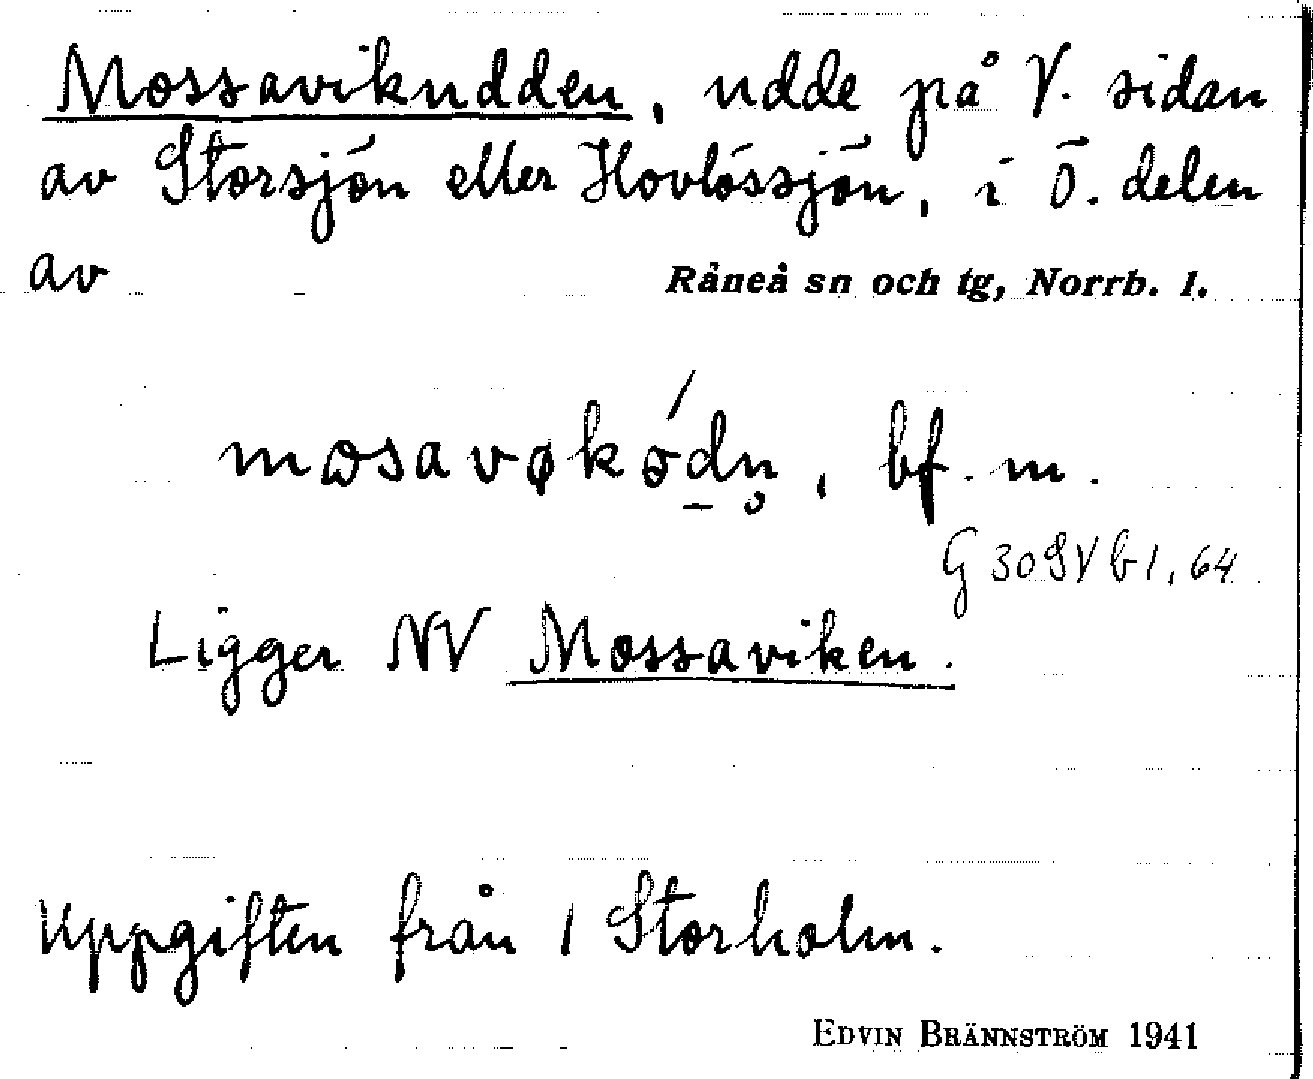 Mossavikudden, udde på V. sidan
av Storsjön eller Hovlössjön, i Ö. delen
av Råneå sn och tg, Norrb. l.
bf. m.
G 30 SV b 1, 64
Ligger NV Mossaviken.
Uppgiften från 1 Storholm.
EDVIN BRÄNNSTRÖM 1941